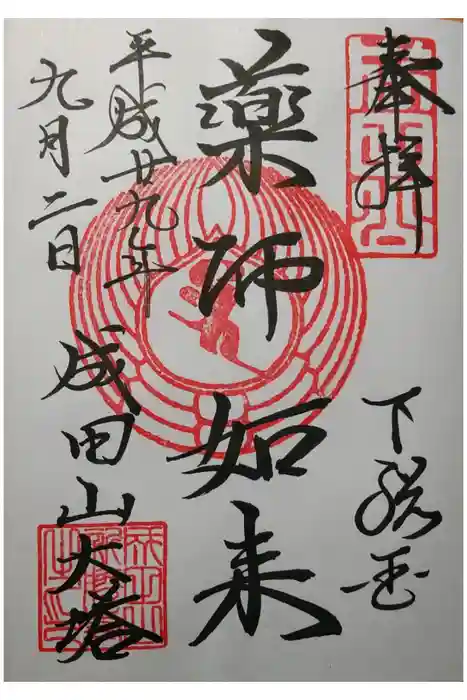 奉拝
下総国
薬師如来
平成廿九年
九月二日
成田山大塔